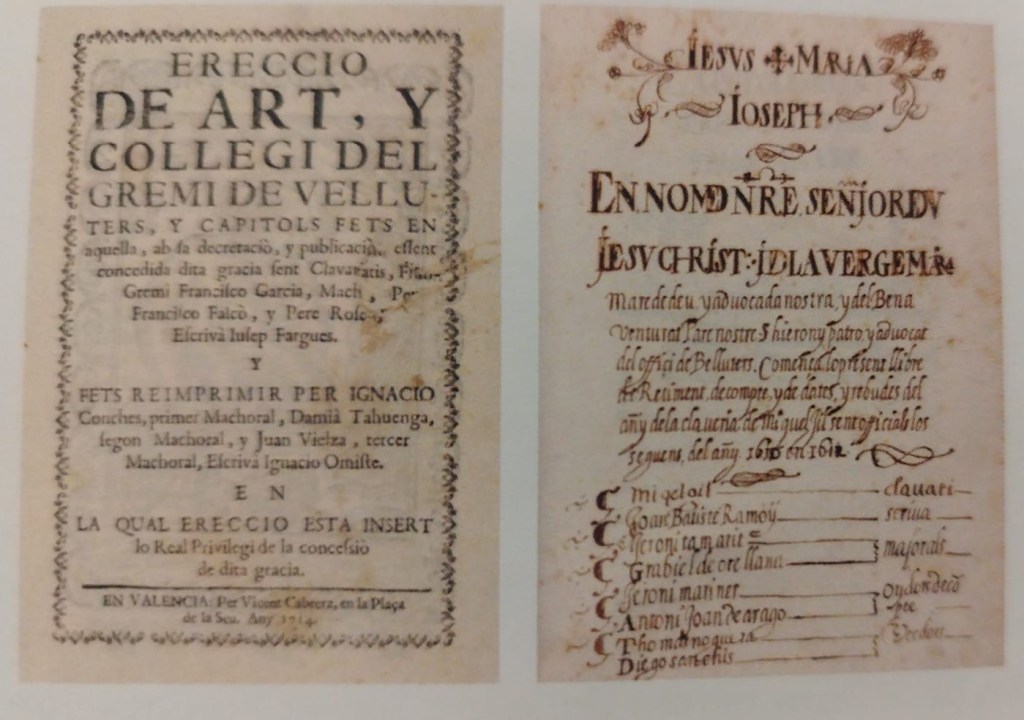 ERECCIO
DE ART, Y
COLLEGI DEL
GREMI DE VELLU-
TERS, Y CAPITOLS FETS EN
aquella, ab sa decretaciò, y publicaciò, essent
concedida dita gracia sent Clavaris,
Gremi Francisco Garcia, Mach ,
Francisco Falcò, y Pere
Escrivà Iusep Fargues.
Y
FETS REIMPRIMIR PER IGNACIO
Conches, primer Machoral, Damià Tahuenga,
segon Machoral, y Juan Vielza, tercer
Machoral, Escrivà Ignacio Omiste.
EN
LA QUAL ERECCIO ESTA INSERT
lo Real Privilegi de la concessiò
de dita gracia.
EN VALENCIA: Per Vicent Cabrera, en la Plaça
de la Seu. Any 1714.
IESVS MARIA
IOSEPH
EN NOM D NRE SENIOR DV
IESV CHRIST: I D LA VERGE MRA
Mare de deu y advocada nostra, y del Bena
Venturat Pare nostre S hierony patro, y advocat
del offici de Belluters. Comença lo present llibre
de Reviment, de compte, y de dates, y rebudes del
añy de la claveria de Miquel Gil sent officials los
seguens, del añy
Miqel Gil clavari
Joan Batiste Ramoy scriva
Hieroni tamarit
Grabiel de orellana majorals
Jeroni mariner
Antoni Joan de arago
Thomas noquera
Diego